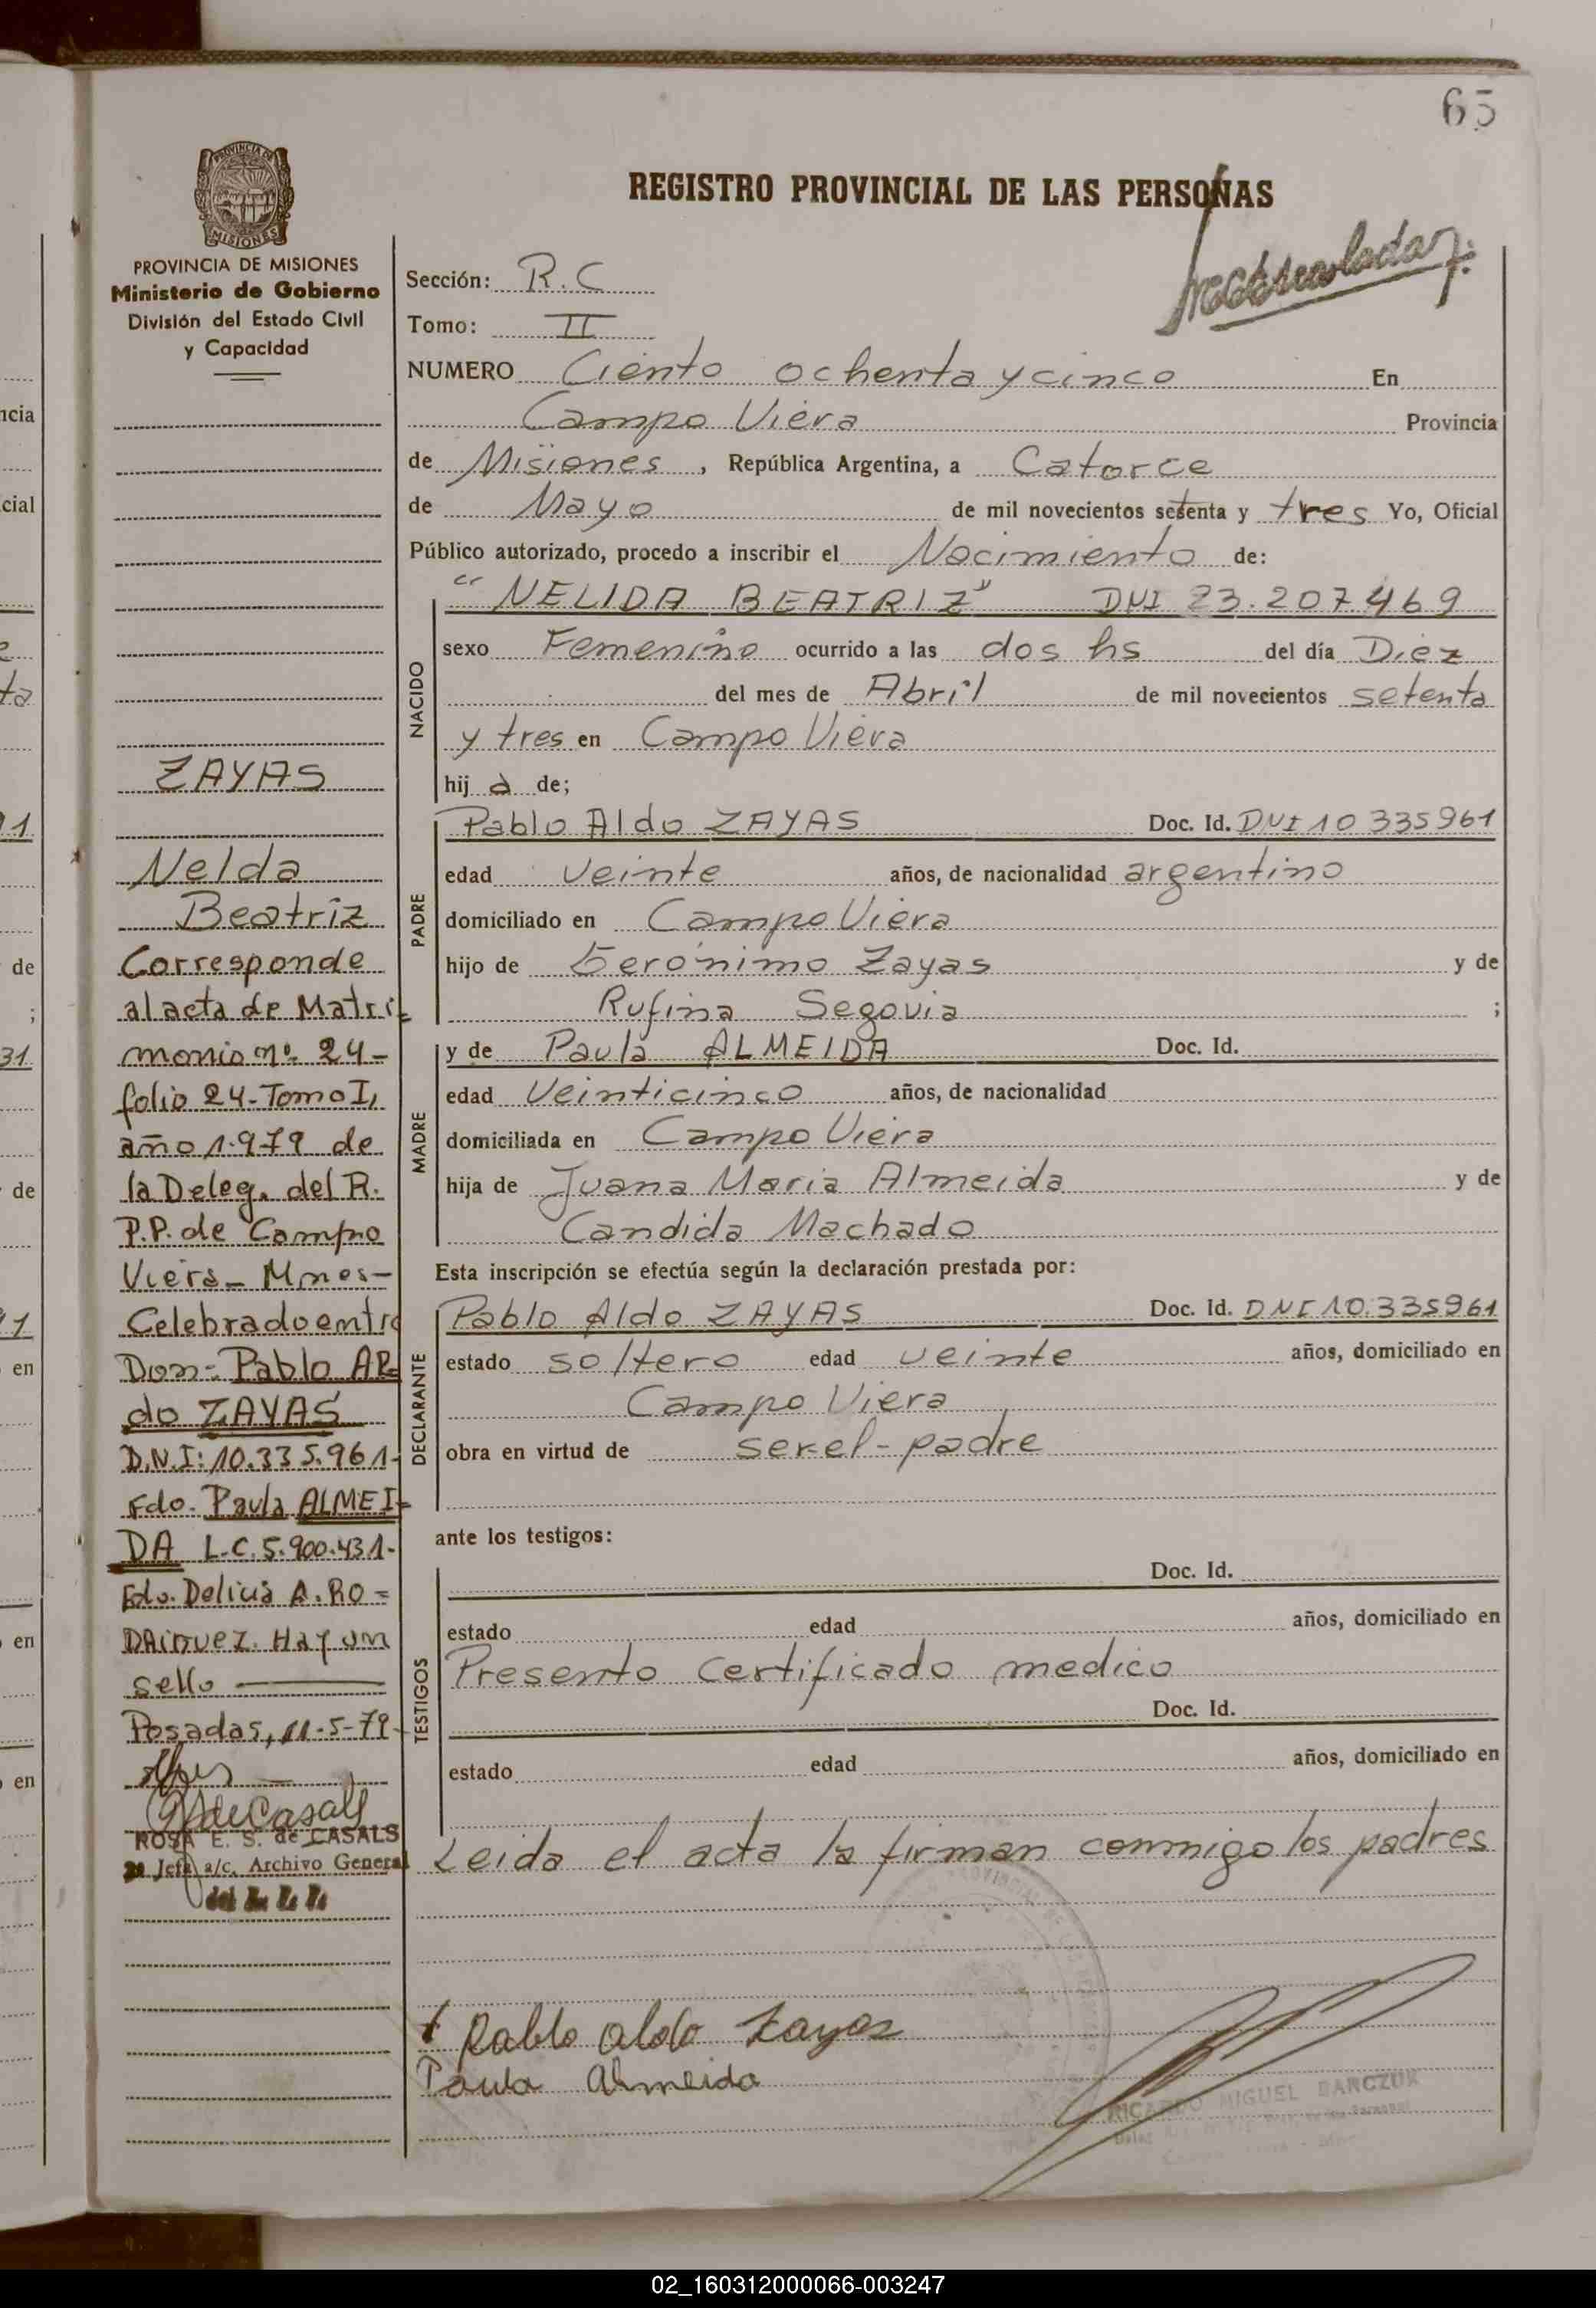 65
PROVINCIA DE
MISIONES
REGISTRO PROVINCIAL DE LAS PERSONAS
PROVINCIA DE MISIONES
Ministerio de Gobierno
División del Estado Civil
y Capacidad
ZAYAS
Nelda
Beatriz
Corresponde
al acta de Matri-
monio nº 24-
folio 24-Tomo I,
año 1.979 de
la Deleg. del R.
P.P. de Campo
Viera- Mnes-
Celebrado entre
Don: Pablo Al-
do ZAYAS
D.N.I: 10.335.961-
Fdo. Paula ALMEI-
DA L.C. 5.900.431-
Fdo. Delicia A. RO=
DRIGUEZ. Hay un
sello
Posadas, 11-5-79-
ROSA E. S. de CASALS
Jefe a/c. Archivo General
Sección: R.C
Tomo: II
NUMERO Ciento ochenta y cinco En
Campo Viera Provincia
de Misiones, República Argentina, a Catorce
de Mayo de mil novecientos setenta y tres Yo, Oficial
Público autorizado, procedo a inscribir el Nacimiento de:
"NELIDA BEATRIZ" DNI 23.207.469
NACIDO
sexo Femenino ocurrido a las dos hs del día Diez
del mes de Abril de mil novecientos setenta
y tres en Campo Viera
hij a de;
PADRE
Pablo Aldo ZAYAS Doc. Id. DNI 10 335961
edad veinte años, de nacionalidad argentino
domiciliado en Campo Viera
hijo de Gerónimo Zayas y de
Rufina Segovia ;
MADRE
y de Paula ALMEIDA Doc. Id.
edad Veinticinco años, de nacionalidad
domiciliada en Campo Viera
hija de Juana Maria Almeida y de
Candida Machado
Esta inscripción se efectúa según la declaración prestada por:
DECLARANTE
Pablo Aldo ZAYAS Doc. Id. DNI 10.335961
estado soltero edad veinte años, domiciliado en
Campo Viera
obra en virtud de ser el - padre
ante los testigos:
TESTIGOS
Doc. Id.
estado edad años, domiciliado en
Presento certificado medico
Doc. Id.
estado edad años, domiciliado en
Leida el acta la firman conmigo los padres
Pablo aldo Zayas
Paula Almeida
RICARDO MIGUEL BANCZUK
02_160312000066-003247